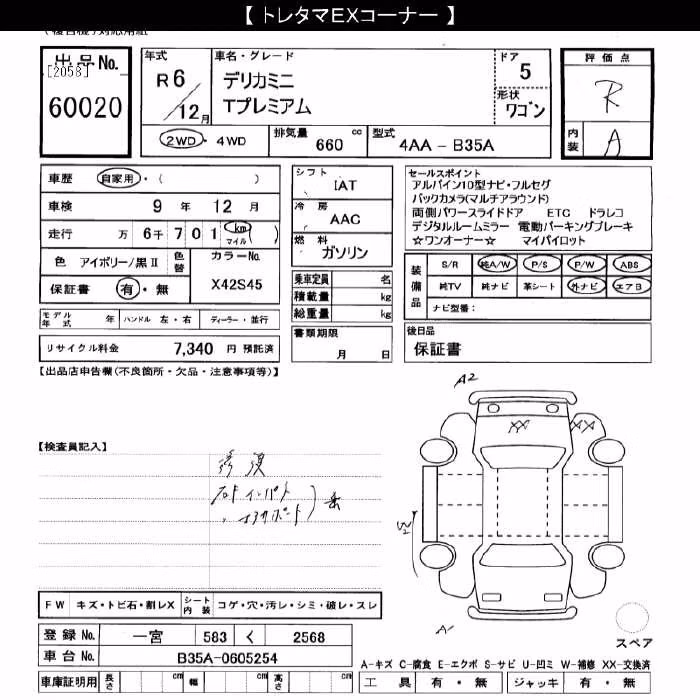 【 トレタマEXコーナー 】
出品No.
[2058]
60020
年式
R6
12月
車名・グレード
デリカミニ
Tプレミアム
ドア
5
形状
ワゴン
2WD・4WD
排気量 660 cc
型式 4AA - B35A
評価点
R
内装
A
車歴 自家用・( )
車検 9年 12月
走行 万 6千 701 (km マイル)
色 アイボリー/黒Ⅱ
色替
カラーNo.
X42S45
保証書 有・無
モデル年式 年 ハンドル 左・右 ディーラー・並行
リサイクル料金 7,340 円 預託済
シフト
IAT
冷房
AAC
燃料
ガソリン
乗車定員 名
積載量 kg
総重量 kg
書類期限
月 日
セールスポイント
アルパイン10型ナビ・フルセグ
バックカメラ(マルチアラウンド)
両側パワースライドドア ETC ドラレコ
デジタルルームミラー 電動パーキングブレーキ
☆ワンオーナー☆ マイパイロット
装備品
S/R 純A/W P/S P/W ABS
純TV 純ナビ 革シート 外ナビ エアB
ナビ型番：
後日品
保証書
【出品店申告欄(不良箇所・欠品・注意事項等)】
A2
XX
XX
【検査員記入】
修復
FW キズ・トビ石・割レX シート内装 コゲ・穴・汚レ・シミ・破レ・スレ
登録No. 一宮 583 く 2568
車台No. B35A-0605254
車庫証明用 長さ cm 幅 cm 高さ cm
スペア
A-キズ C-腐食 E-エクボ S-サビ U-凹ミ W-補修 XX-交換済
工具 有・無 ジャッキ 有・無